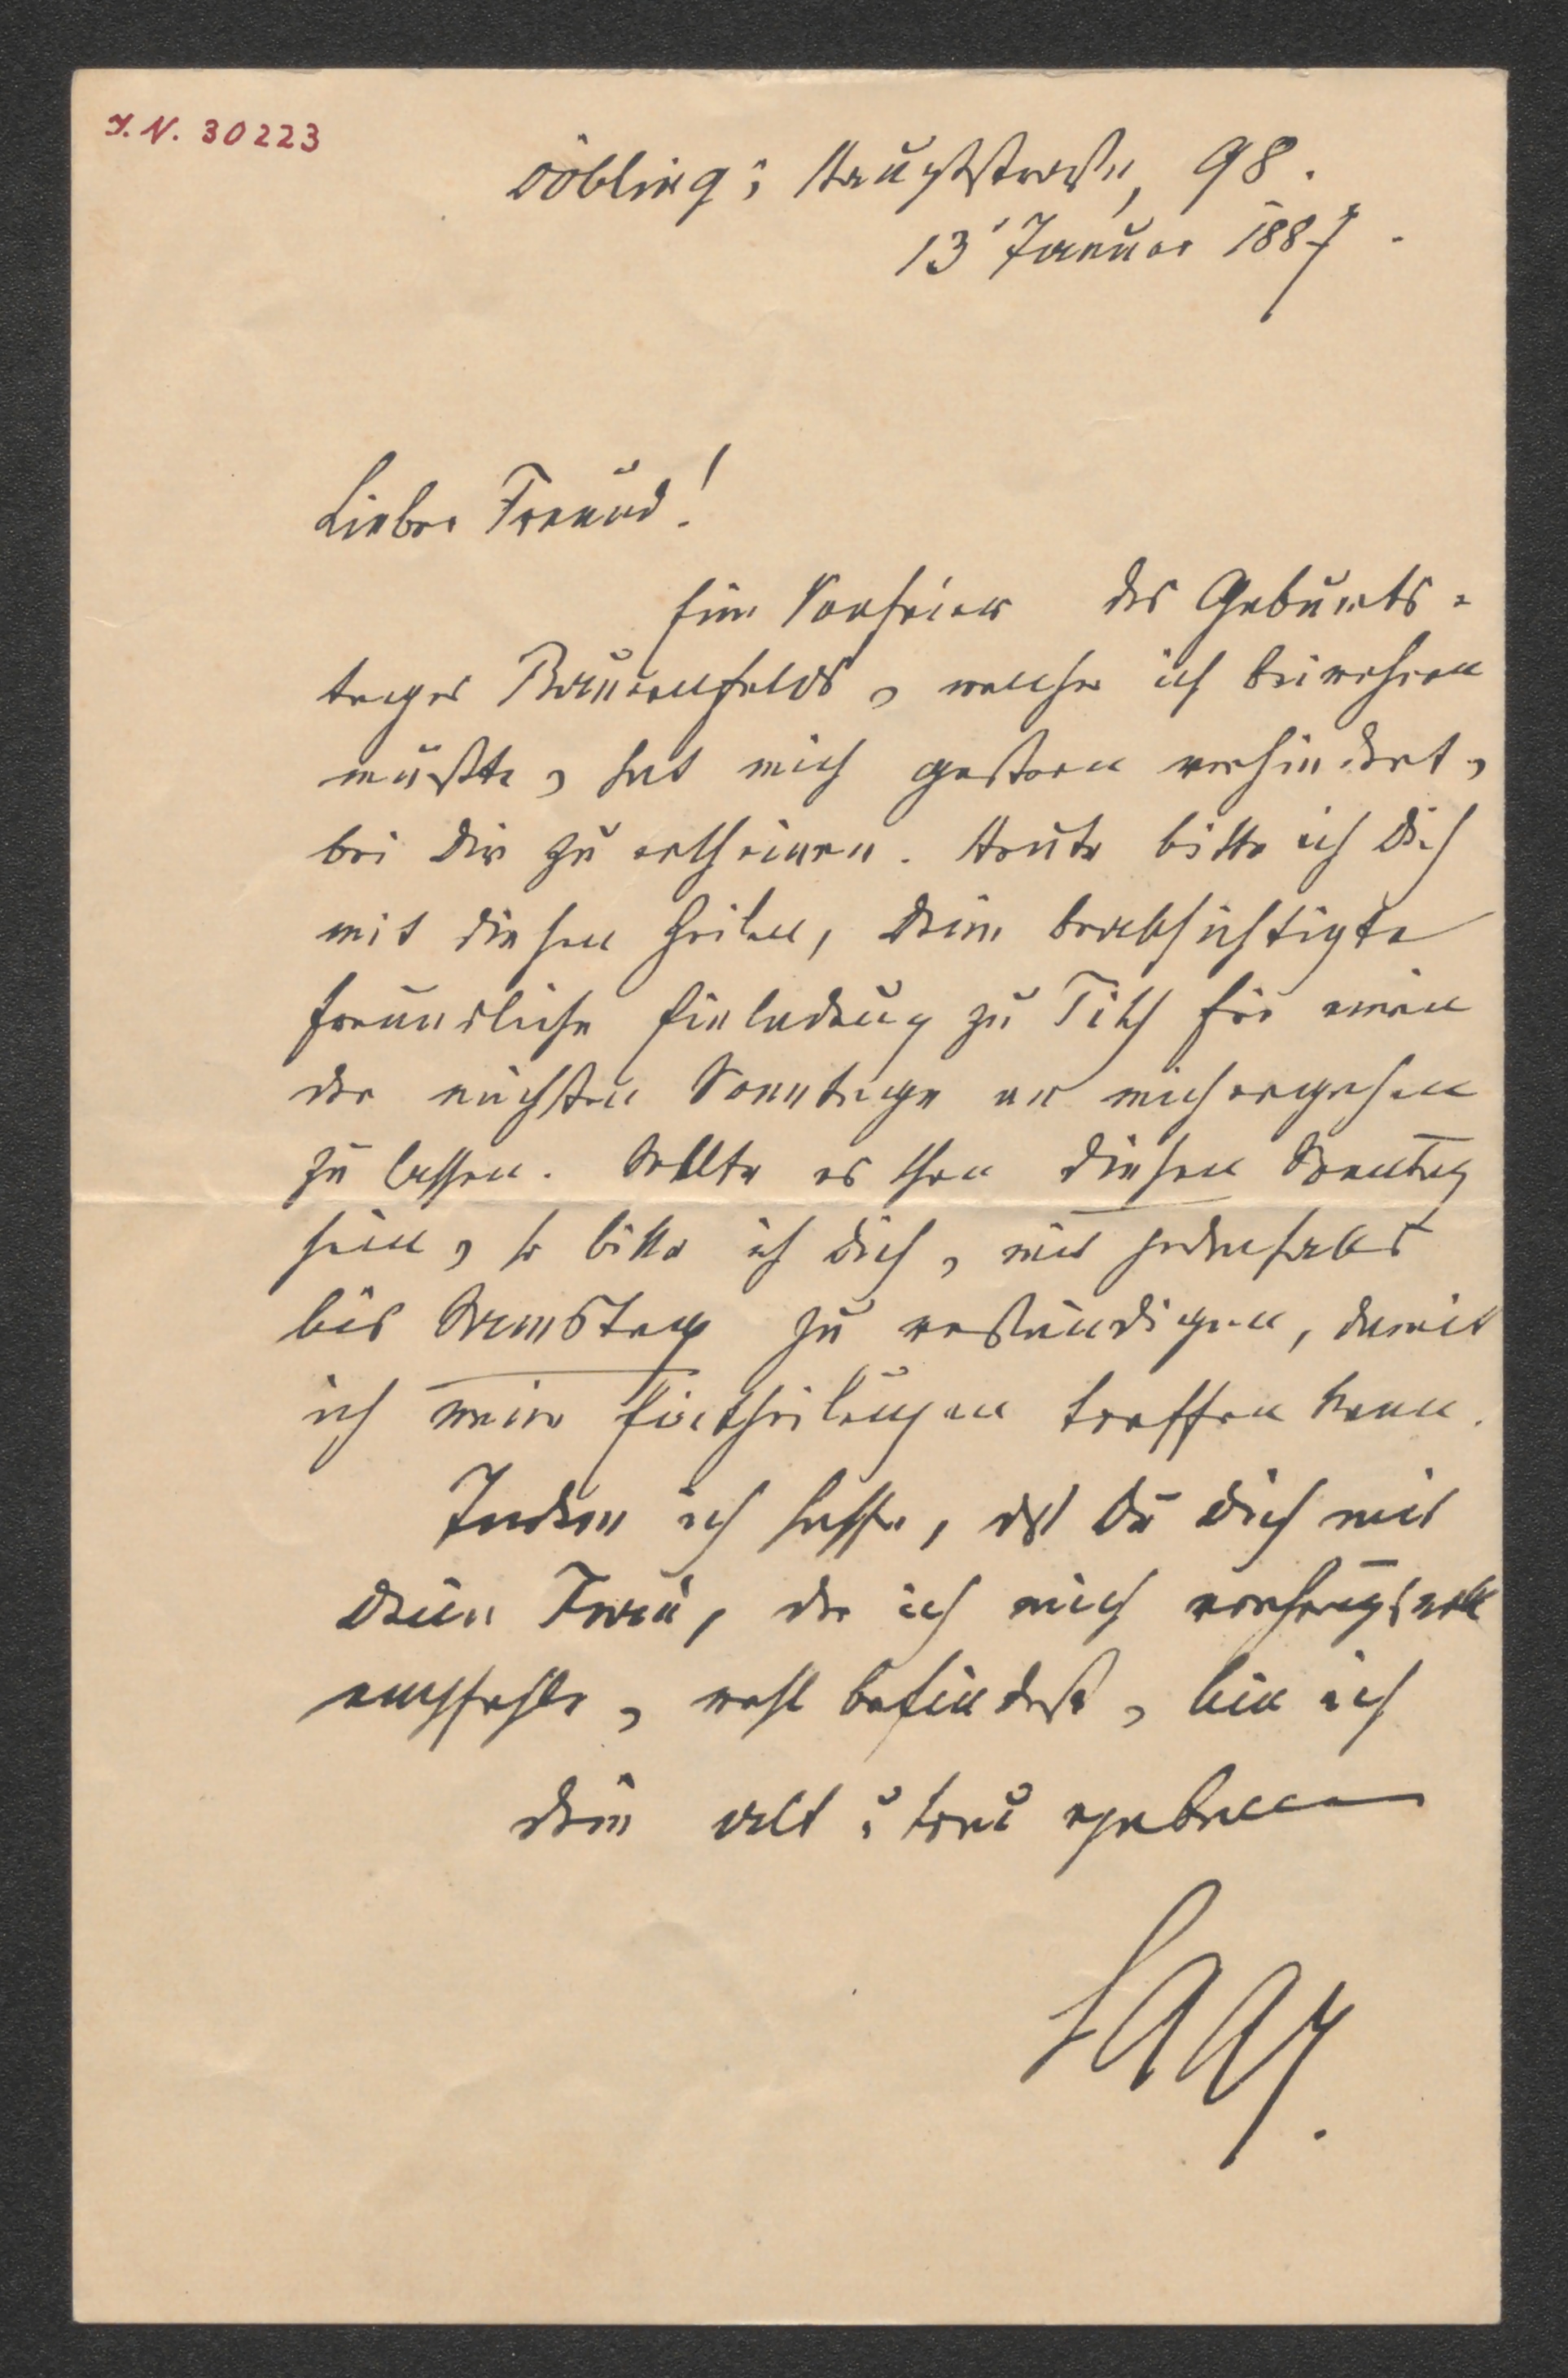 I. N. 30223
Döbling; Hauptstraße, 98.
13' Januar 1887.
Lieber Freund!
Eine Vorfeier des Geburts-
tages Bauernfelds, welcher ich beiwohnen
mußte, hat mich gestern verhindert,
bei Dir zu erscheinen. Heute bitte ich Dich
mit diesen Zeilen, Deine beabsichtigte
freundliche Einladung zu Tisch für einen
der nächsten Sonntage an mich ergehen
zu lassen. Sollte es schon diesen Sonntag
sein, so bitte ich Dich, mich jedenfalls
bis Samstag zu verständigen, damit
ich meine Eintheilungen treffen kann.
Indem ich hoffe, daß Du Dich mit
Deiner Frau, der ich mich verehrungsvoll
empfehle, wohl befindest, bin ich
Dein alt u. treu ergebener
Saar.